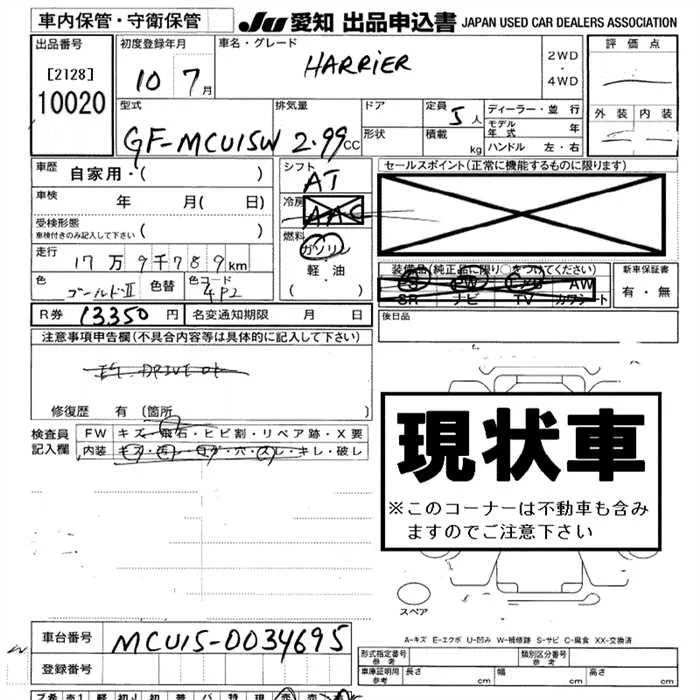 車内保管・守衛保管
JU 愛知 出品申込書 JAPAN USED CAR DEALERS ASSOCIATION
出品番号
[2128]
10020
初度登録年月
10 7月
車名・グレード
HARRIER
2WD
・
4WD
評価点
外装 内装
型式
GF-MCU15W
排気量
2.99cc
ドア
形状
定員
5人
積載
kg
ディーラー・並行
モデル年式 年
ハンドル 左・右
車歴
自家用・( )
車検 年 月( 日)
受検形態
車検付きのみ記入して下さい ( )
走行
17万9千789km
色
ゴールドII
色替
色コード
4P2
シフト
AT
冷房
AAC
燃料
ガソリン
軽・油
( )
セールスポイント(正常に機能するものに限ります)
装備品(純正品に限り○をつけてください)
PS PW エアB AW
SR ナビ TV カワシート
新車保証書
有・無
R券 13350円
名変通知期限 月 日
後日品
注意事項申告欄(不具合内容等は具体的に記入して下さい)
修復歴 有 〔箇所 〕
検査員
記入欄
FW キズ・飛石・ヒビ割・リペア跡・X要
内装 キズ・汚レ・コゲ・穴・スレ・キレ・破レ
現状車
※このコーナーは不動車も含み
ますのでご注意下さい
スペア
A-キズ E-エクボ U-凹み W-補修跡 S-サビ C-腐食 XX-交換済
車台番号
MCU15-0034695
登録番号
形式指定番号
参考
類別区分番号
参考
車庫証明用
参考
長さ cm 幅 cm 高さ cm